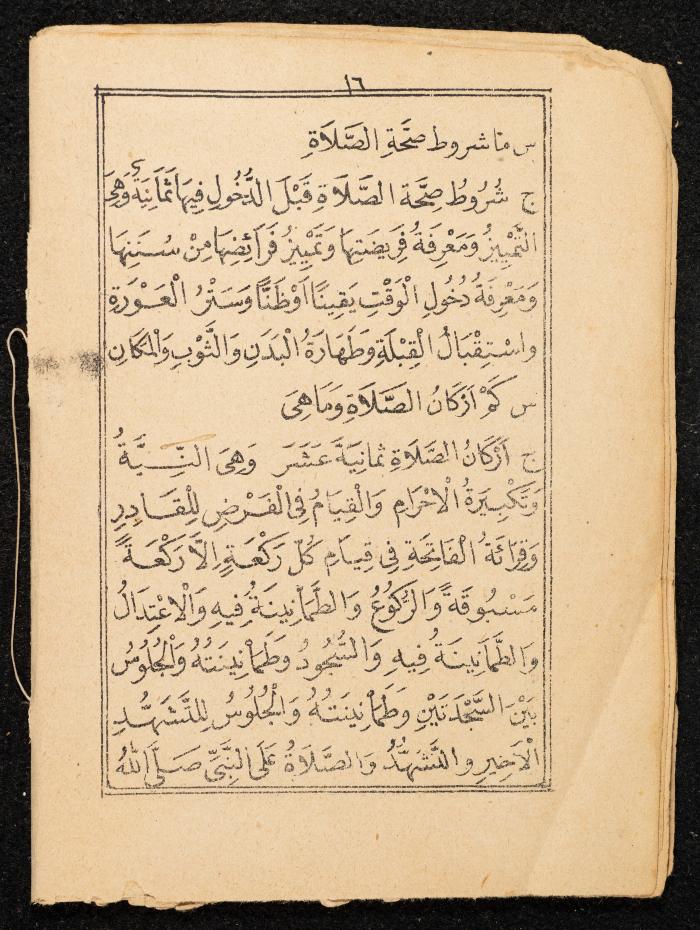 ١٦
س مَا شروط صحَّةِ الصَّلَاةِ
ج شُرُوطُ صِحَّةِ الصَّلَاةِ قَبْلَ الدُّخُولِ فِيهَا ثَمَانِيَةٌ وَهِيَ
التَّمْيِيزُ وَمَعْرِفَةُ فَرِيضَتِهَا وَتَمْيِيزُ فَرَائِضِهَا مِنْ سُنَنِهَا
وَمَعْرِفَةُ دُخُولِ الْوَقْتِ يَقِينًا اَوْظَنًّا وَسَتْرُ الْعَوْرَةِ
وَاسْتِقْبَالُ الْقِبْلَةِ وَطَهَارَةُ الْبَدَنِ وَالثَّوْبِ وَالْمَكَانِ
س كَمْ اَرْكَانُ الصَّلَاةِ وَمَاهِىَ
ج اَرْكَانُ الصَّلَاةِ ثَمَانِيَةَ عَشَرَ وَهِىَ النِّيَّةُ
وَتَكْبِيرَةُ الْاِحْرَامِ وَالْقِيَامُ فِى الْفَرْضِ لِلْقَادِرِ
وَقِرَائَةُ الْفَاتِحَةِ فِى قِيَامِ كُلِّ رَكْعَةٍ اِلَّا رَكْعَةً
مَسْبُوقَةً وَالرُّكُوعُ وَالطَّمَاْنِينَةُ فِيهِ وَالْاِعْتِدَالُ
وَالطَّمَاْنِينَةُ فِيهِ وَالسُّجُودُ وَطَمَاْنِينَتُهُ وَالْجُلُوسُ
بَيْنَ السَّجْدَتَيْنِ وَطَمَاْنِينَتُهُ وَالْجُلُوسُ لِلتَّشَهُّدِ
الْاَخِيرِ وَالتَّشَهُّدُ وَالصَّلَاةُ عَلَى النَّبِىِّ صَلَّى اللهُ